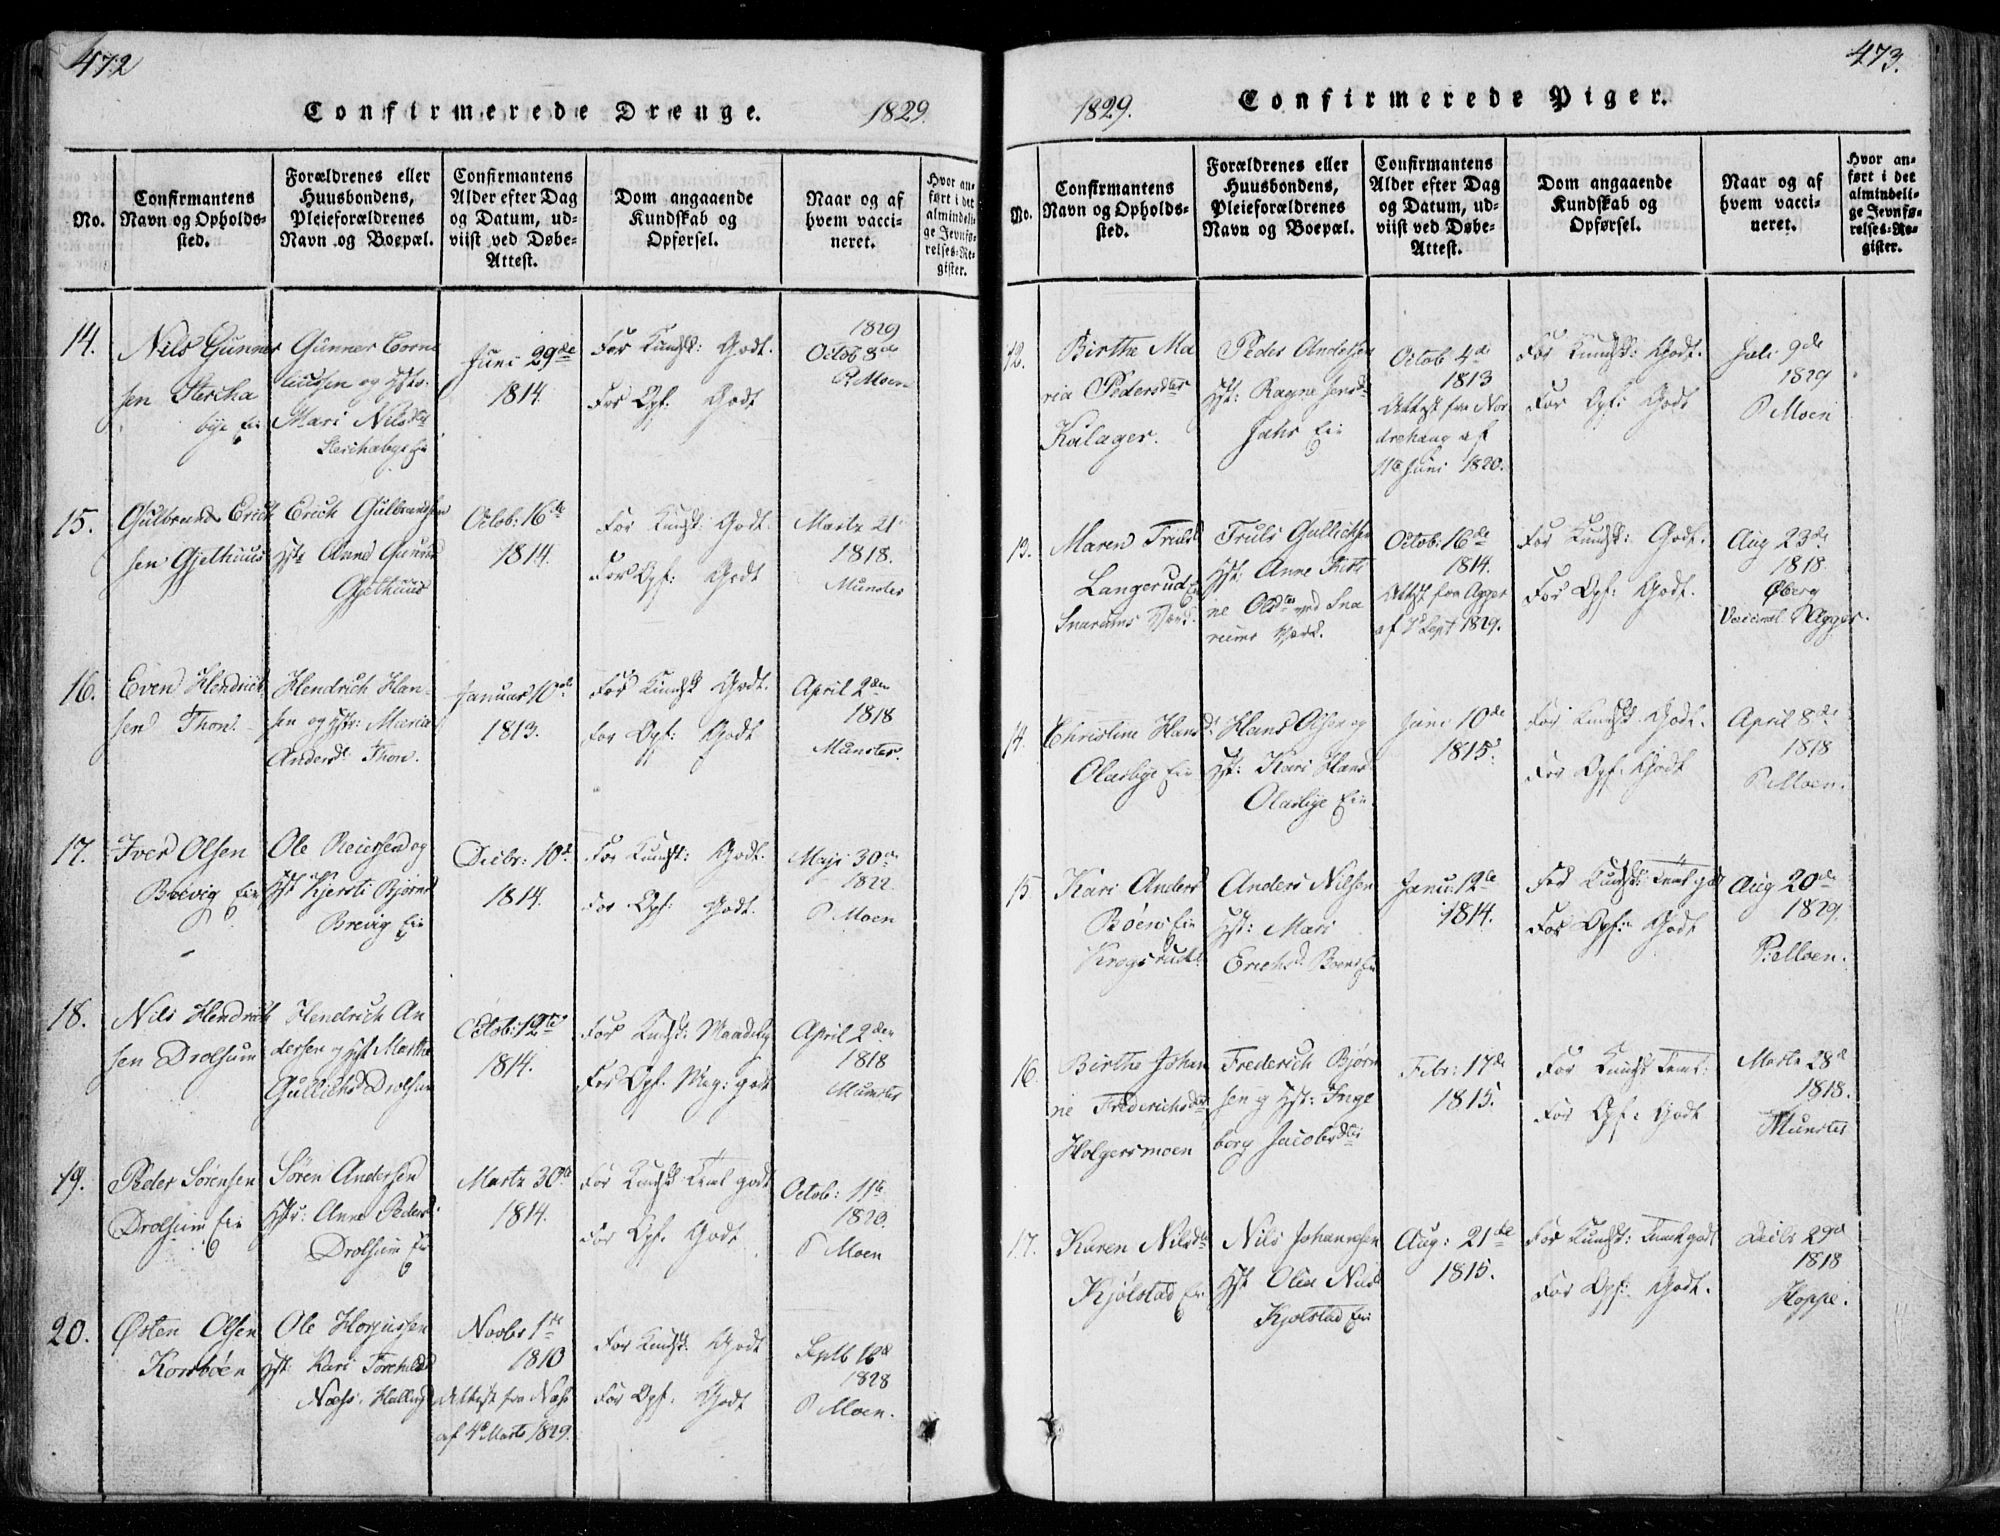 472
Confirmerede Drenge.
1829.
No.
Confirmantens
Navn og Opholds-
sted.
Forældrenes eller
Huusbondens,
Pleieforældrenes
Navn og Boepæl.
Confirmantens
Alder efter Dag
og Datum, ud-
viist ved Døbe-
Attest.
Dom angaaende
Kundskab og
Opførsel.
Naar og af
hvem vacci-
neret.
Hvor an-
ført i det
almindeli-
ge Jevnfø-
relses-Re-
gister.
14.
Nils Gunner
sen Stercha
bye Eie
Gunner Corne
liussen og Hstr.
Mari Nilsdtr
Sterchabye Eie
Juni 29de
1814.
For Kundsk: Godt.
For Opf: Godt
1829
Octob 8de
P Moen
15.
Gulbrand Erich
sen Gjethuus
Erich Gulbrandsen
Hst Anne
Gjethuus
Octob: 16de
1814.
For Kundsk: Godt.
For Opf: Godt
Martz 21
1818.
Munster
16.
Even Hendrich
sen Thon.
Hendrich Han-
sen og Hstr: Maria
Andersd. Thon.
Januar 10de
1813.
For Kundsk Godt.
For Opf: Godt
April 2den
1818
Munster.
17.
Iver Olsen
Brevig Eie
Ole Reiersen og
Hst Kjersti Bjørnsd
Brevig Eie
Decbr: 10d.
1814.
For Kundsk: Godt.
For Opf: Godt.
Maji 30de
1822
P Moen
18.
Nils Hendrich
sen Drolsum
Hendrich An
dersen og Hst Marthe
Gullichsd Drolsum
Octob: 12te
1814.
For Kundsk: Maadelig
For Opf. Meg: godt
April 2den
1818
Munster
19.
Peder Sørensen
Drolsum Eie
Søren Andersen
Hstr: Anne Peders
Drolsum Eie
Martz 30de
1814.
For Kundsk Teml godt
For Opf. Godt
Octob: 11te
1820.
P Moen
20.
Østen Olsen
Korsbøen
Ole
Hst: Kari
Næss. Halling
Novbr 1ste
1810
Attest fra Næss
af 4de Marts 1829.
For Kundsk: Godt
For Opf. Godt
Septb 16de
1828
P Moen.
473.
1829.
Confirmerede Piger.
No.
Confirmantens
Navn og Opholds-
sted.
Forældrenes eller
Huusbondens,
Pleieforældrenes
Navn og Boepæl.
Confirmantens
Alder efter Dag
og Datum, ud-
viist ved Døbe-
Attest.
Dom angaaende
Kundskab og
Opførsel.
Naar og af
hvem vacci-
neret.
Hvor an-
ført i det
almindeli-
ge Jevnfø-
relses-Re-
gister.
12.
Birthe Ma
ria Pedersdter
Kålager.
Peder Andersen
Hst: Ragne Jensd
Jahr Eie
Octob 4de
1813
Attest fra Nor
drehaug af
11te Juni 1820.
For Kundsk: Godt.
For Opf: Godt
Juli 9de
1829
P Moen
13.
Maren Trulsd
Langerud Eie
Snarums Værk.
Truls Gullichsen
Hst: Anne Kirsti
ne Olsdter ved Sna
rums Værk.
Octob: 16de
1814.
Attest fra Agger
af Sept 1829.
For Kundsk: Godt.
For Opf: Godt.
Aug 23de
1818
Øberg
Agger.
14.
Christine Hansd
Olasbye Eie
Hans Olsen og
Hst: Kari Hansd
Olasbye Eie.
Juni 10de
1815.
For Kundsk: Godt.
For Opf: Godt
April 8de
1818
P Moen.
15.
Kari Anders
Bøens Eie
Krogsrud.
Anders Nilsen
Hst: Mari
Erichsd. Boens Eie
Janu: 12te
1814.
For Kundsk: Teml godt
For Opf: Godt
Aug 20de
1829.
P Moen.
16.
Birthe Johan
ne Frederichsdtr
Holgersmoen
Frederich Bjørn
sen og Hst: Inge
borg Jacobsdtr
Febr: 17de
1815.
For Kundsk Teml:
For Opf: Godt
Martz 28de
1818.
Munster
17.
Karen Nilsdtr
Kjølstad Eie
Nils Johannesen
Hst Olia Nilsd
Kjølstad Eie
Aug: 21de
1815.
For Kundsk: Temt godt
For Opf: Godt.
Decbr 29de
1818
Hoppe.